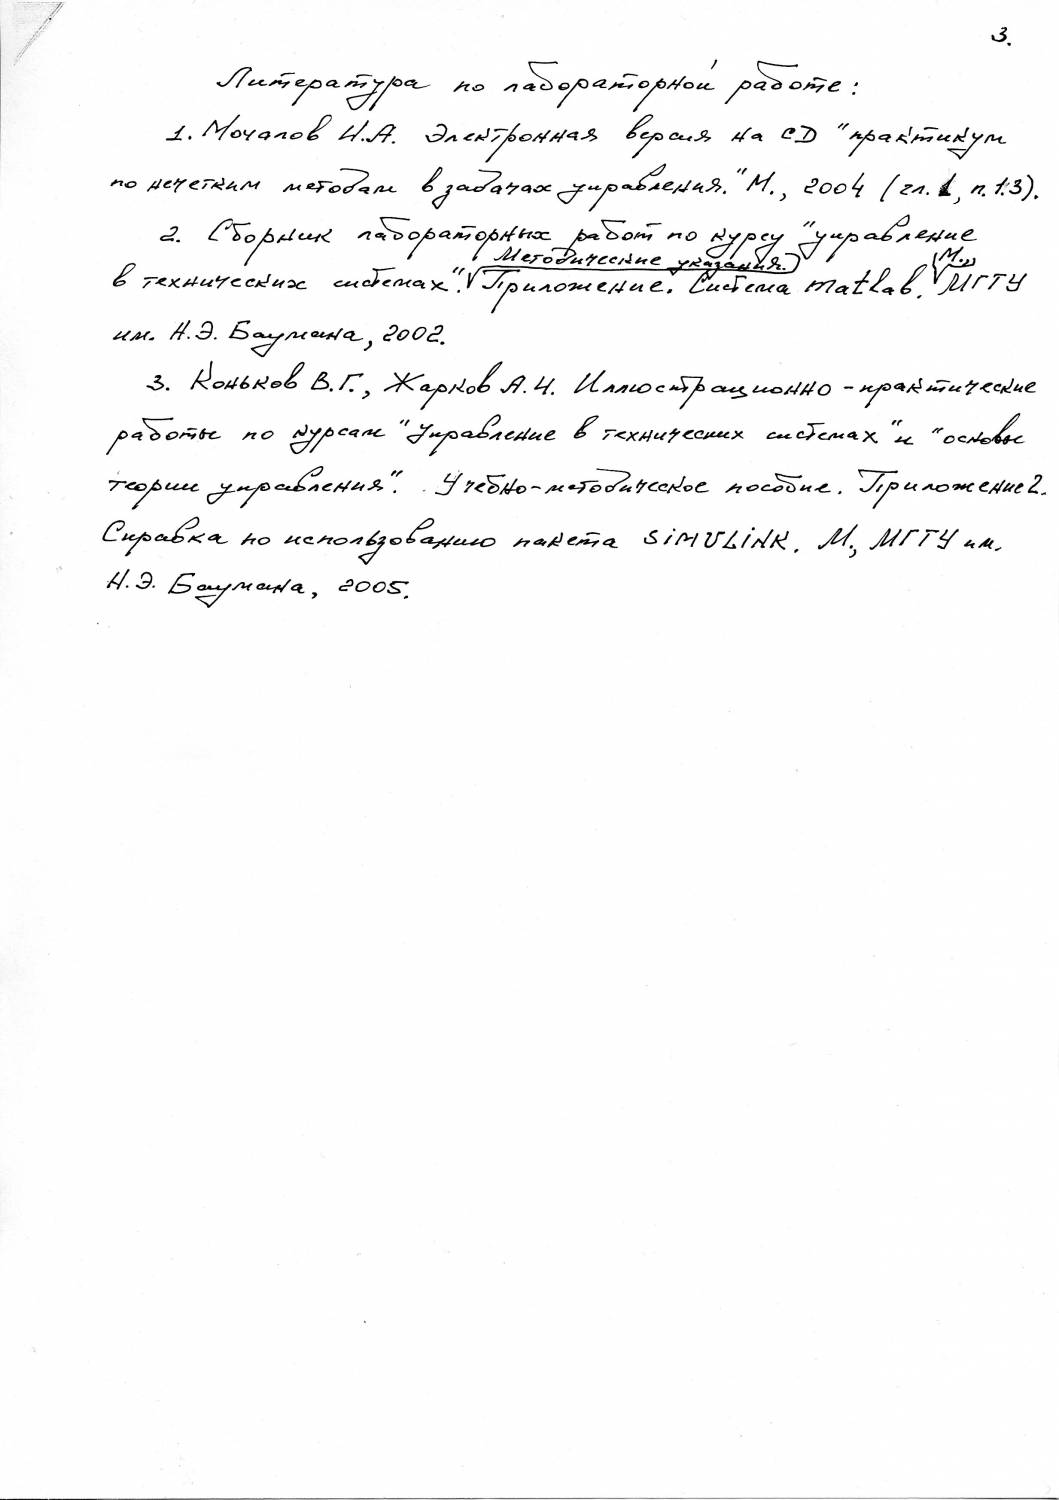 3.
Литература по лабораторной работе:
1. Мочалов И.А. Электронная версия на CD "практикум
по нечетким методам в задачах управления." М., 2004 (гл. 1, п. 1.3).
2. Сборник лабораторных работ по курсу "управление
в технических системах". Методические указания. Приложение. Система matlab. М., МГТУ
им. Н.Э. Баумана, 2002.
3. Коньков В.Г., Жарков А.И. Иллюстрационно-практические
работы по курсам "Управление в технических системах" и "основы
теории управления". Учебно-методическое пособие. Приложение 2.
Справка по использованию пакета SiMULiNK. М., МГТУ им.
Н.Э. Баумана, 2005.